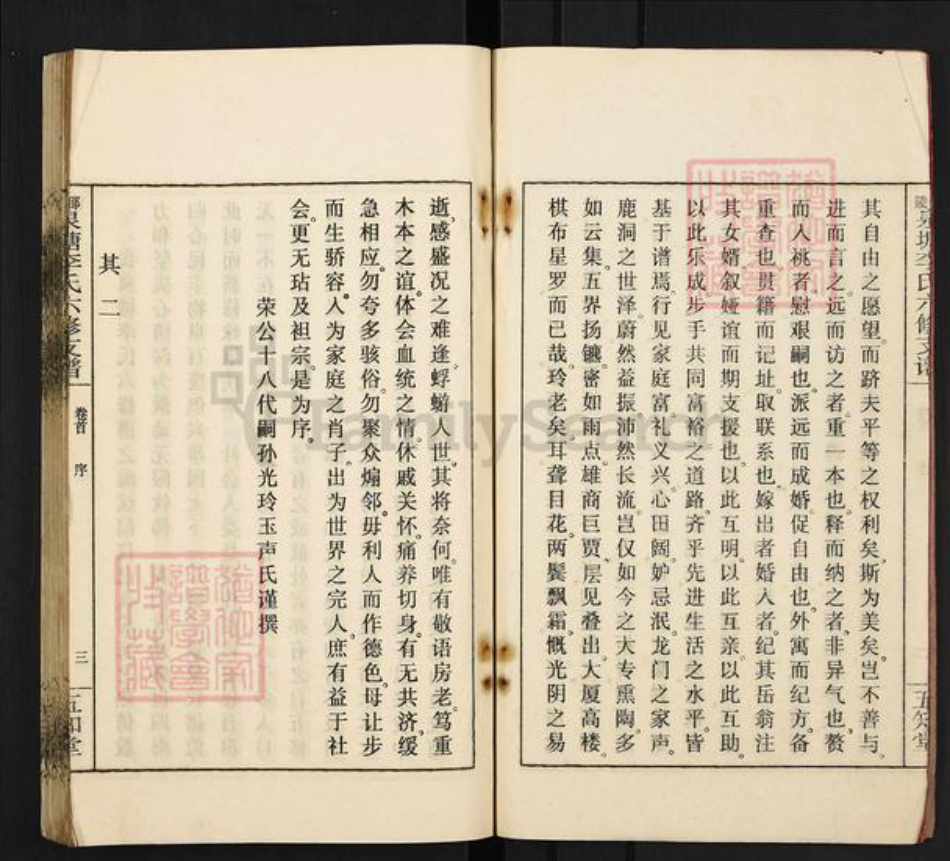 其自由之愿望。而跻夫平等之权利矣。斯为美矣。岂不善与。
进而言之。远而访之者。重一本也。释而纳之者。非异气也。赘
而入祧者。慰艰嗣也。派远而成婚。促自由也。外寓而纪方。备
重查也。贯籍而记址。取联系也。嫁出者婚入者。纪其岳翁。注
其女婿。叙娅谊而期支援也。以此互明。以此互亲。以此互助。
以此乐成。步手共同富裕之道路。齐乎先进生活之水平。皆
基于谱焉。行见家庭富。礼义兴。心田阔。妒忌泯。龙门之家声。
鹿洞之世泽。蔚然益振。沛然长流。岂仅如今之大专熏陶。多
如云集。五界扬镳。密如雨点。雄商巨贾。层见叠出。大厦高楼。
棋布星罗而已哉。玲老矣。耳聋目花。两鬓飘霜。慨光阴之易
逝。感盛况之难逢。蜉蝣人世。其将奈何。唯有敬语房老。笃重
木本之谊。体会血统之情。休戚关怀。痛养切身。有无共济。缓
急相应。勿夸多骇俗。勿聚众煽邻。毋利人而作德色。母让步
而生骄容。人为家庭之肖子。出为世界之完人。庶有益于社
会。更无玷及祖宗。是为序。
荣公十八代嗣孙光玲玉声氏谨撰
其二
泉塘李氏六修支谱
卷首
序
三
五知堂